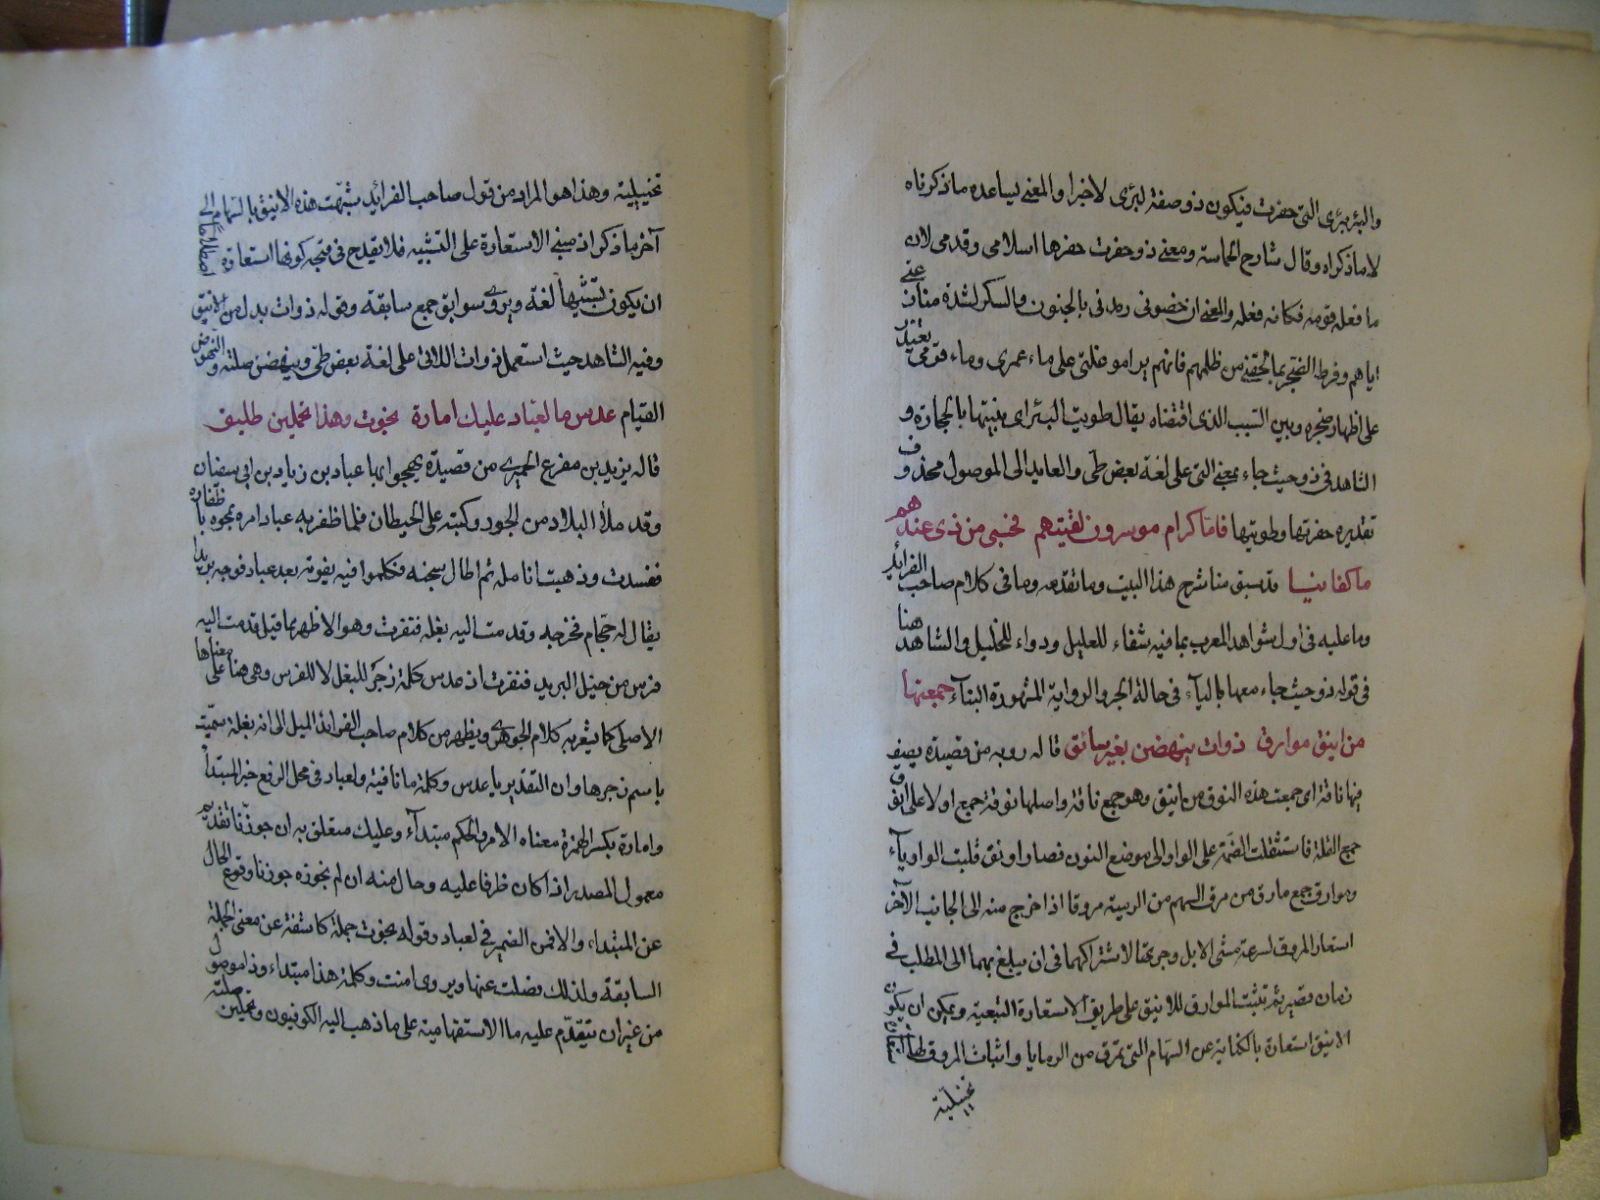 والبئر بئرى التى حفرت فيكون ذو صفة لبئرى لاخبرا والمعنى يساعده ماذكرناه
لاماذكراه وقال شارح الحماسة ومعنى ذو حفرت حفرها اسلامى وقدمى لان
ما فعله قومه فكانه فعله والمعنى ان خصونى رمونى بالجنون والسكر لشدة منافع
اياهم وفرط التضجر بما لحقنى من ظلمهم فانهم يراموننى على ماء عمرى وماء قومى يعتذر
على اظهار ضجره وبين السبب الذى اقتضاه يقال طويت البئر اى بنيتها بالحجارة و
الشاهد فى ذو حيث جاء بمعنى التى على لغة بعض طى والعايد الى الموصول محذوف
تقديره حفرتها وطويتها فاما كرام موسرون لقيتهم فحسبى من ذى عندهم
ماكفانيا قد سبق منا شرح هذا البيت وما تقدمه وما فى كلام صاحب الفرائد
وما عليه فى اول شواهد المعرب بما فيه شفاء للعليل ودواء للخليل والشاهد هنا
فى قوله ذو حيث جاء معها بالياء فى حالة الجر والرواية المشهورة البناء جمعتها
من اينق موارق ذوات ينهضن بغير سائق قاله روبه من قصيدة يصف
فيها ناقة اى جمعت هذه النوق من اينق وهو جمع ناقة واصلها نوقة جمع اولا على انوق
جمع القلة فاستثقلت الضمة على الواو الى موضع النون فصار اونق قلبت الواو ياء
وموارق جمع مارق من مرق السهم من الرمية مروقا اذا خرج منه الى الجانب الآخر
استعار المروق لسرعة مشى الابل وجريها لاشتراكهما فى ان يبلغ بهما الى المطلب فى
زمان قصير ثم تثبت الموارق للاينق على طريق الاستعارة التبعية ويمكن ان يكون
الاينق استعارة بالكناية عن السهام التى تمرق من الرمايا واثبات المروق لها استعارة
تخييلية
تخييلية وهذا هو المراد من قول صاحب الفرائد شبهت هذه الاينق بالسهام الى
آخر ما ذكر اذ مبنى الاستعارة على التشبيه فلا يقدح فى متجه كونها استعارة اصطلاحا
ان يكون تشبيها لغة ويروى سوابق جمع سابقة وقوله ذوات بدل من الاينق
وفيه الشاهد حيث استعمل ذوات اللاتى على لغة بعض طى وينهضن صلته والنهوض
القيام عدس ما لعباد عليك امارة نجوت وهذا تحملين طليق
قاله يزيد بن مفرغ الحميرى من قصيدة يهجوا بها عباد بن زياد بن ابى سفيان
وقد ملأ البلاد من الهجو وكتبه على الحيطان فلما ظفر به عباد امره بمحوه باظفاره
ففسدت وذهبت انامله ثم اطال سجنه فكلموا فيه يعوية بعد عباد فوجه بريدا
يقال له حجام فخرجه وقدمت اليه بغلة فنفرت وهو الاظهر مما قيل قدمت اليه
فرس من خيل البريد فنفرت اذ عدس كلمة زجر للبغل لا للفرس وهى هنا على معناها
الاصلى كما يشعر به كلام الجوهرى ويظهر من كلام صاحب الفوائد الميل الى انه بغلة سميت
باسم زجرها وان التقدير يا عدس وكلمة ما نافية ولعباد فى محل الرفع خبر المبتدأ
وامارة بكسر الهمزة معناه الامر والحكم مبتدأ وعليك متعلق به ان جوزنا تقديم
معمول المصدر اذا كان ظرفا عليه وحال منه ان لم نجوزه جوزنا وقوع الحال
عن المبتداء والا فمن الضمير فى لعباد وقوله نجوت جملة كاشفة عن معنى الجملة
السابقة ولذلك فصلت عنها ويروى امنت وكلمة هذا مبتداء وذا موصول
من غير ان يتقدم عليه ما الاستفهامية على ما ذهب اليه الكوفيون وتحملين صلته